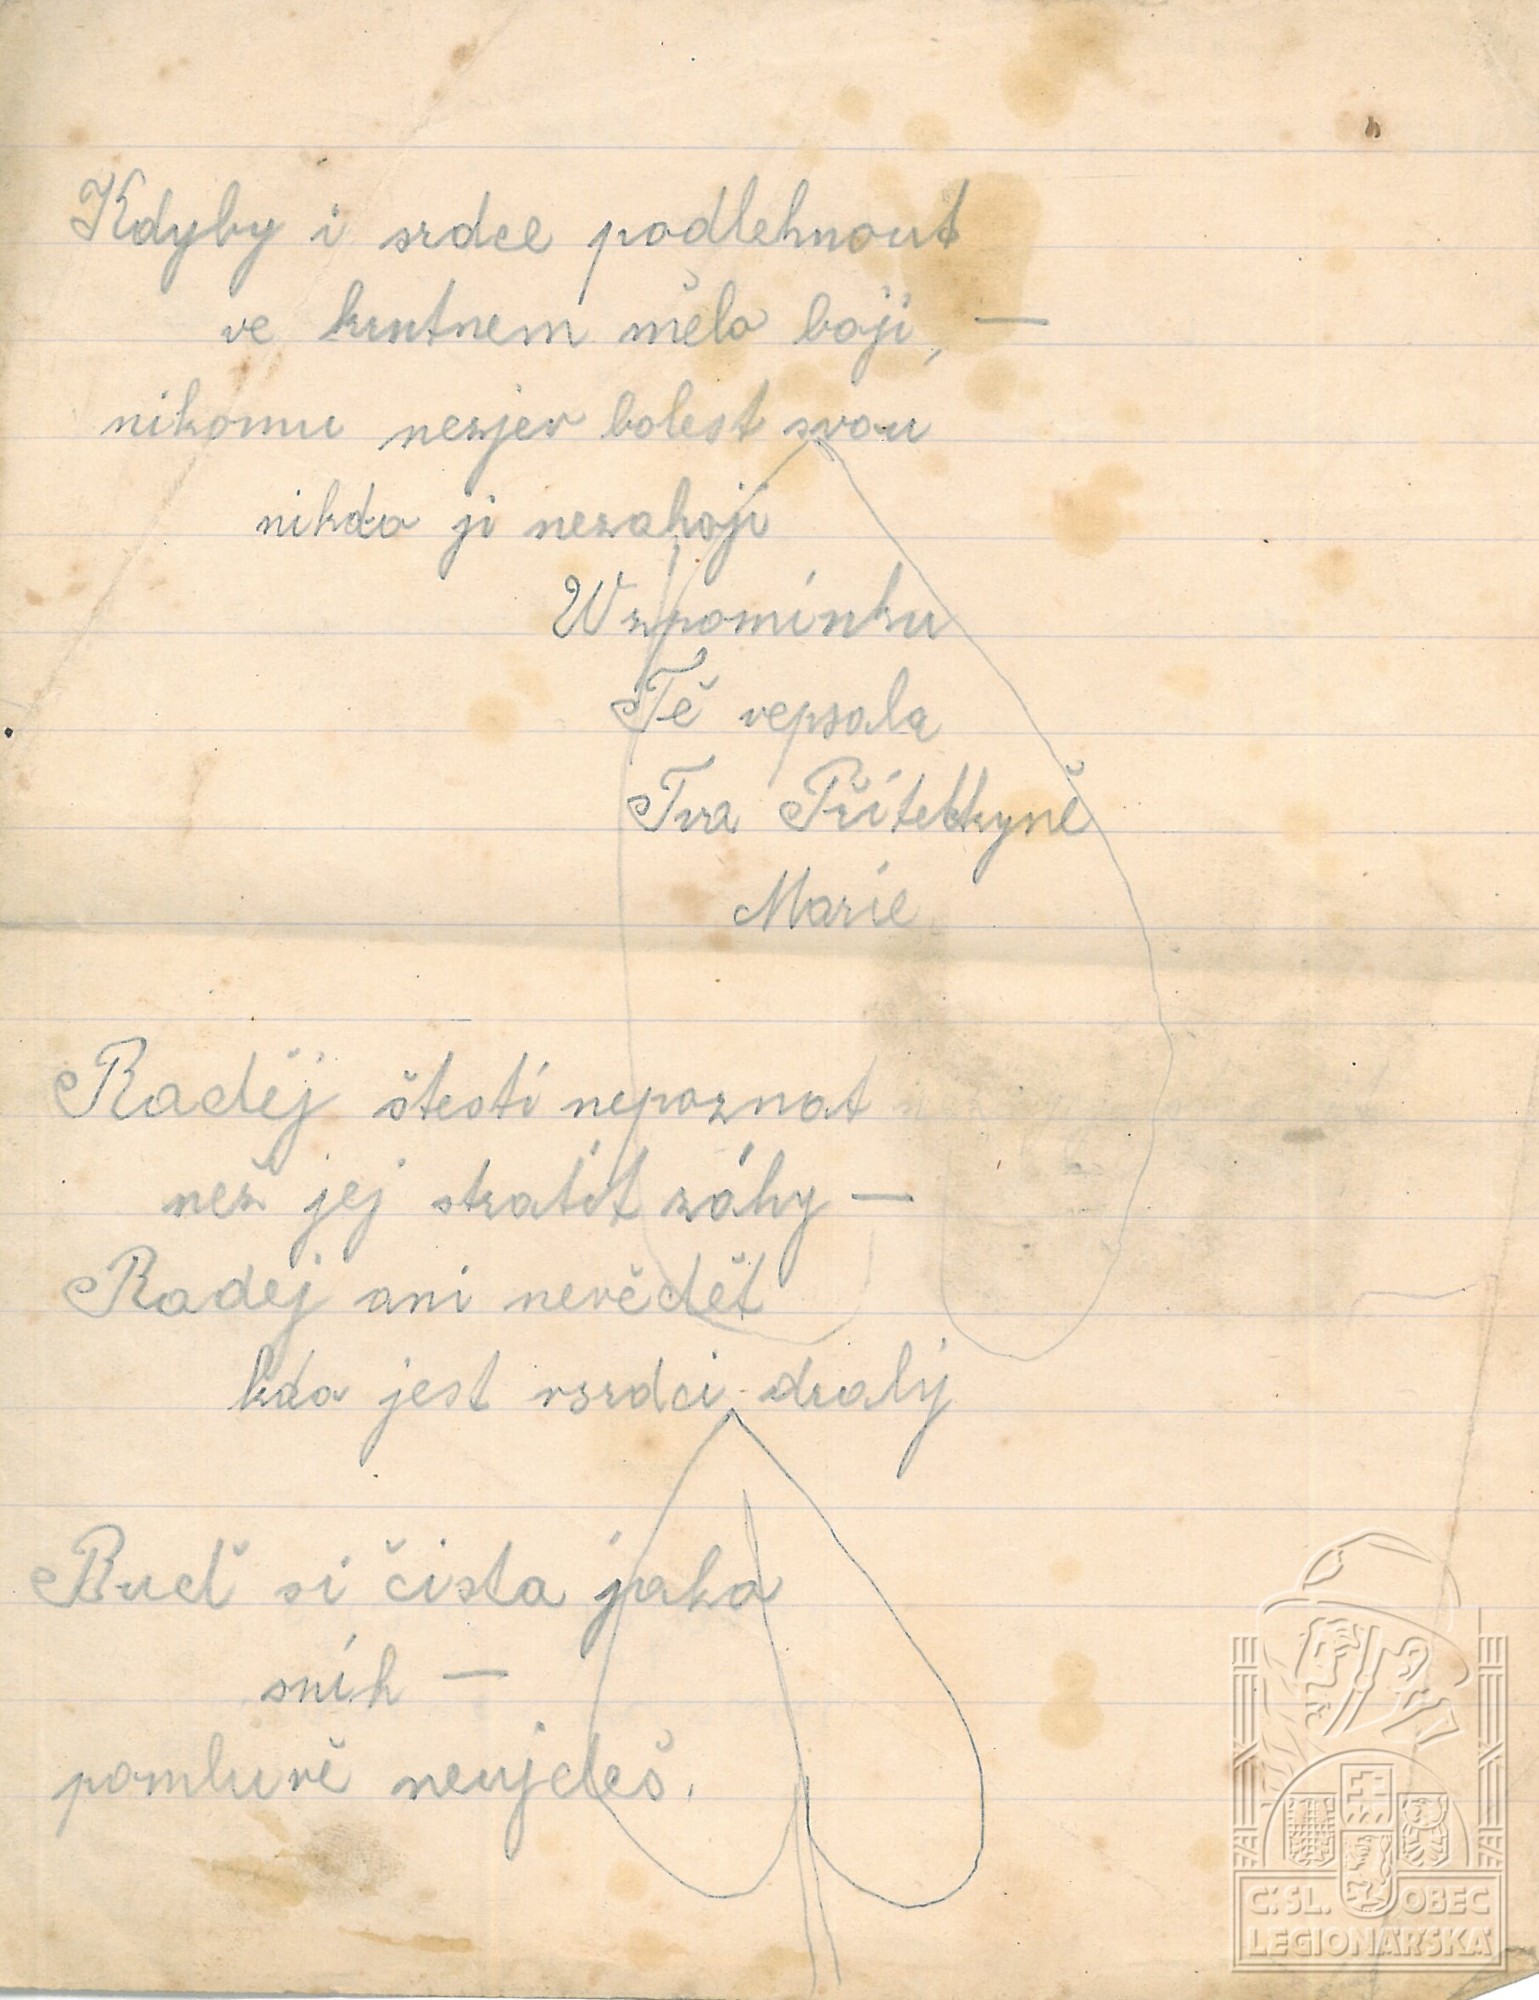 Kdyby i srdce podlehnout
ve krutnem mělo boji, —
nikomu nezjev bolest svou
nikdo ji nezahoji
Wzpomínku
Tě vepsala
Tva Přítelkyně
Marie
Raděj štestí nepoznat
než jej stratit záhy —
Radej ani nevědět
kdo jest vsrdci drahý
Buď si čista jako
sníh —
pomluvě neujdeš.
ČSL. OBEC
LEGIONÁŘSKÁ